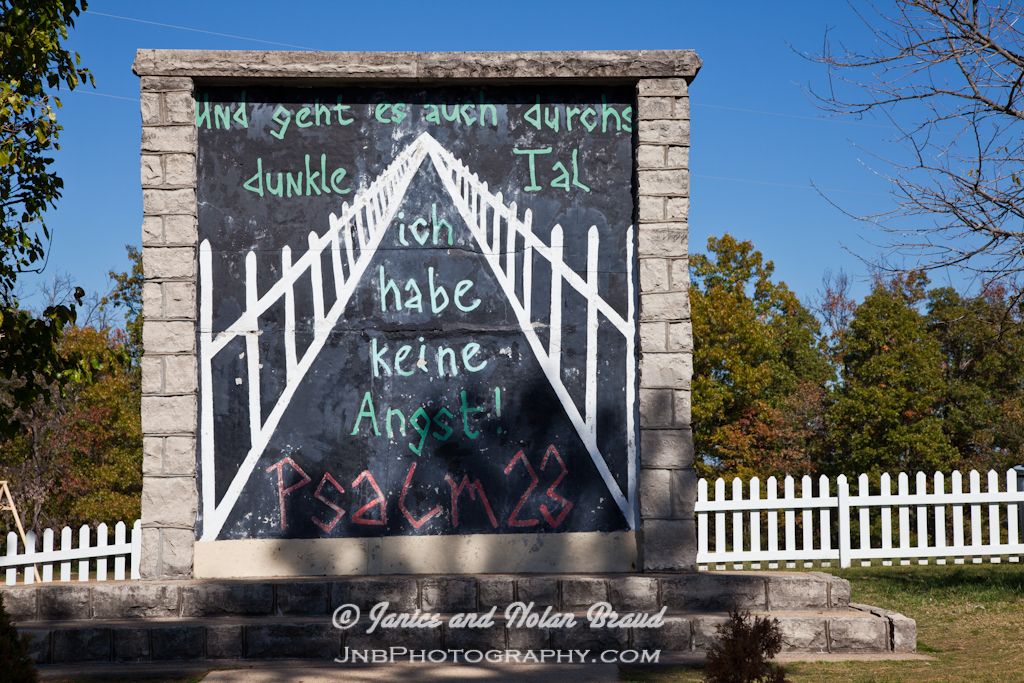 Und geht es auch durchs
dunkle Tal
ich
habe
keine
Angst!
Psalm 23
© Janice and Nolan Braud
JnBPhotography.com